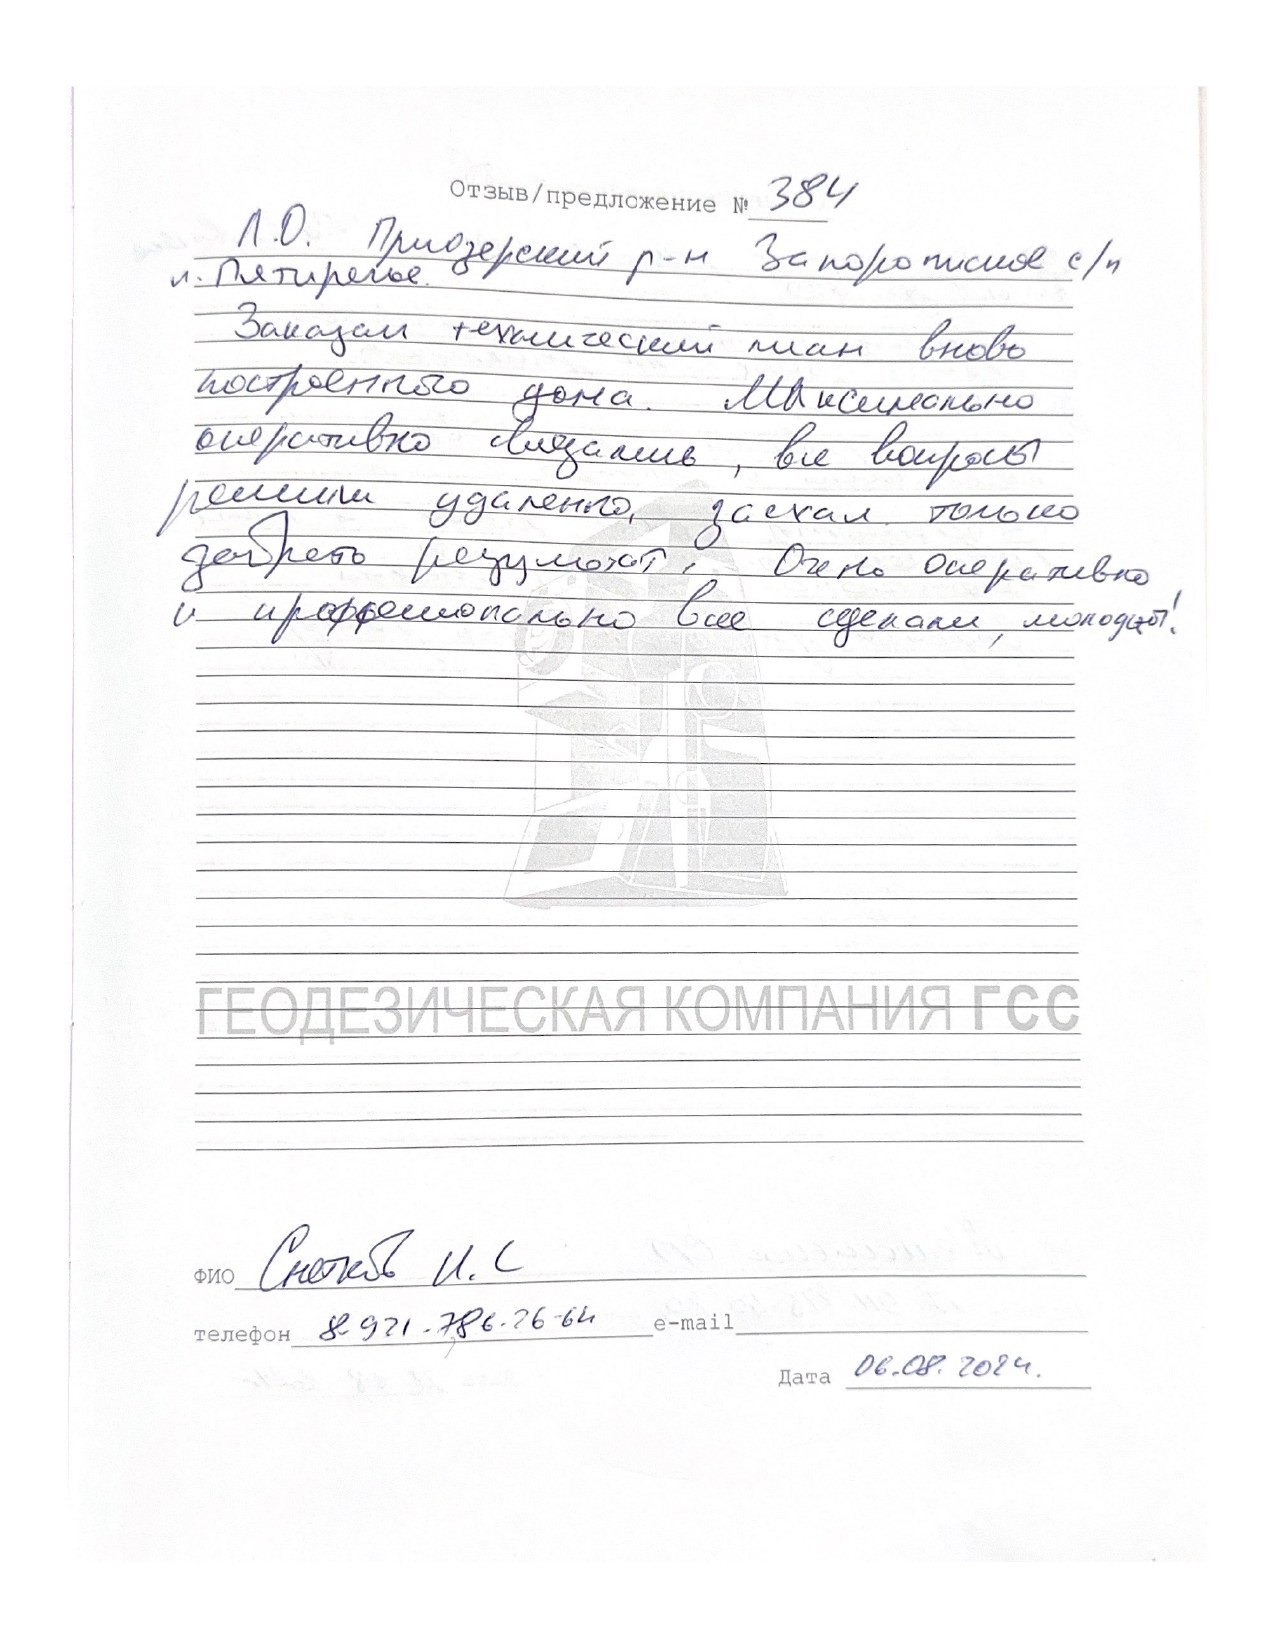 Отзыв/предложение № 384
Л.О. Приозерский р-н Запорожское с/п
п. Пятиречье.
Заказал технический план вновь
построенного дома. Максимально
оперативно связались, все вопросы
решили удаленно, заехал только
забрать результат. Очень оперативно
и профессионально все сделали, молодцы!
ГЕОДЕЗИЧЕСКАЯ КОМПАНИЯ ГСС
ФИО Снетков И. С
телефон 8-921-786-26-64 e-mail
Дата 06.08.2024.